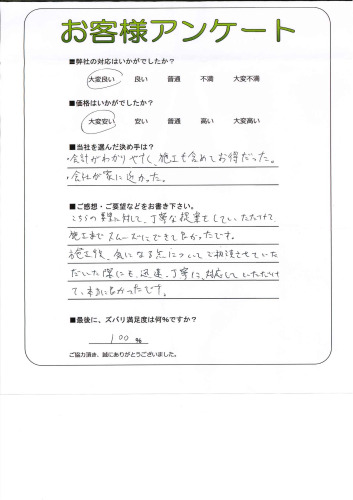 お客様アンケート
■弊社の対応はいかがでしたか？
大変良い 良い 普通 不満 大変不満
■価格はいかがでしたか？
大変安い 安い 普通 高い 大変高い
■当社を選んだ決め手は？
・会計がわかりやすく、施工も含めてお得だった。
・会社が家に近かった。
■ご感想・ご要望などをお書き下さい。
こちらの要望に対して、丁寧な提案をしていただけて、
施工までスムーズにできて良かったです。
施工後、気になる点についてご相談させていた
だいた際にも、迅速、丁寧に対応していただけ
て、本当によかったです。
■最後に、ズバリ満足度は何%ですか？
100 %
ご協力頂き、誠にありがとうございました。